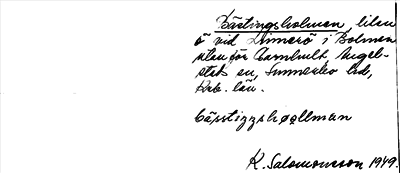 Bästingsholmen, liten
ö vid Linnerö i Bolmen
utanför Barnhult Angel-
stads sn, Sunnerbo hd,
Krb. län.
bässtiggshøllman
K. Salomonsson 1949.